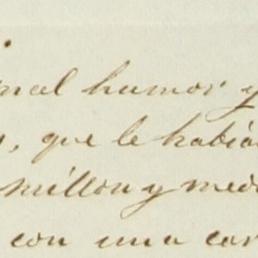 humor y
que le habia
millon y med
con una car